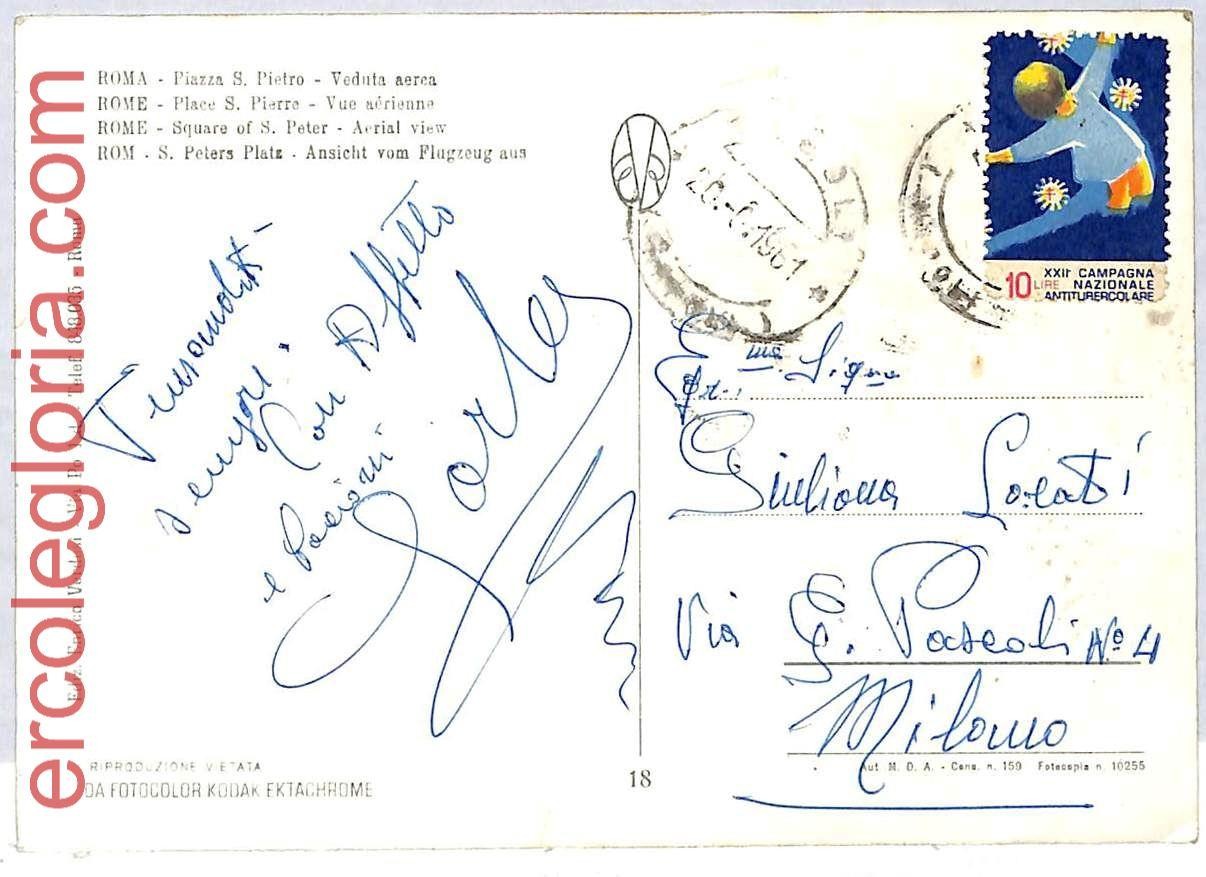 ROMA - Piazza S. Pietro - Veduta aerea
ROME - Place S. Pierre - Vue aérienne
ROME - Square of S. Peter - Aerial view
ROM - S. Peters Platz - Ansicht vom Flugzeug aus
ercolegloria.com
Telef. 848.035 - Roma
20.-6.1961
10 LIRE
XXII CAMPAGNA
NAZIONALE
ANTITUBERCOLARE
Con Affetto
e bacioni
G.ma Sig.na
Giuliana Locati
Via G. Pascoli Nº 4
Milano
RIPRODUZIONE VIETATA
DA FOTOCOLOR KODAK EKTACHROME
18
Aut M. D. A. - Cens. n. 159 Fotocopia n. 10255